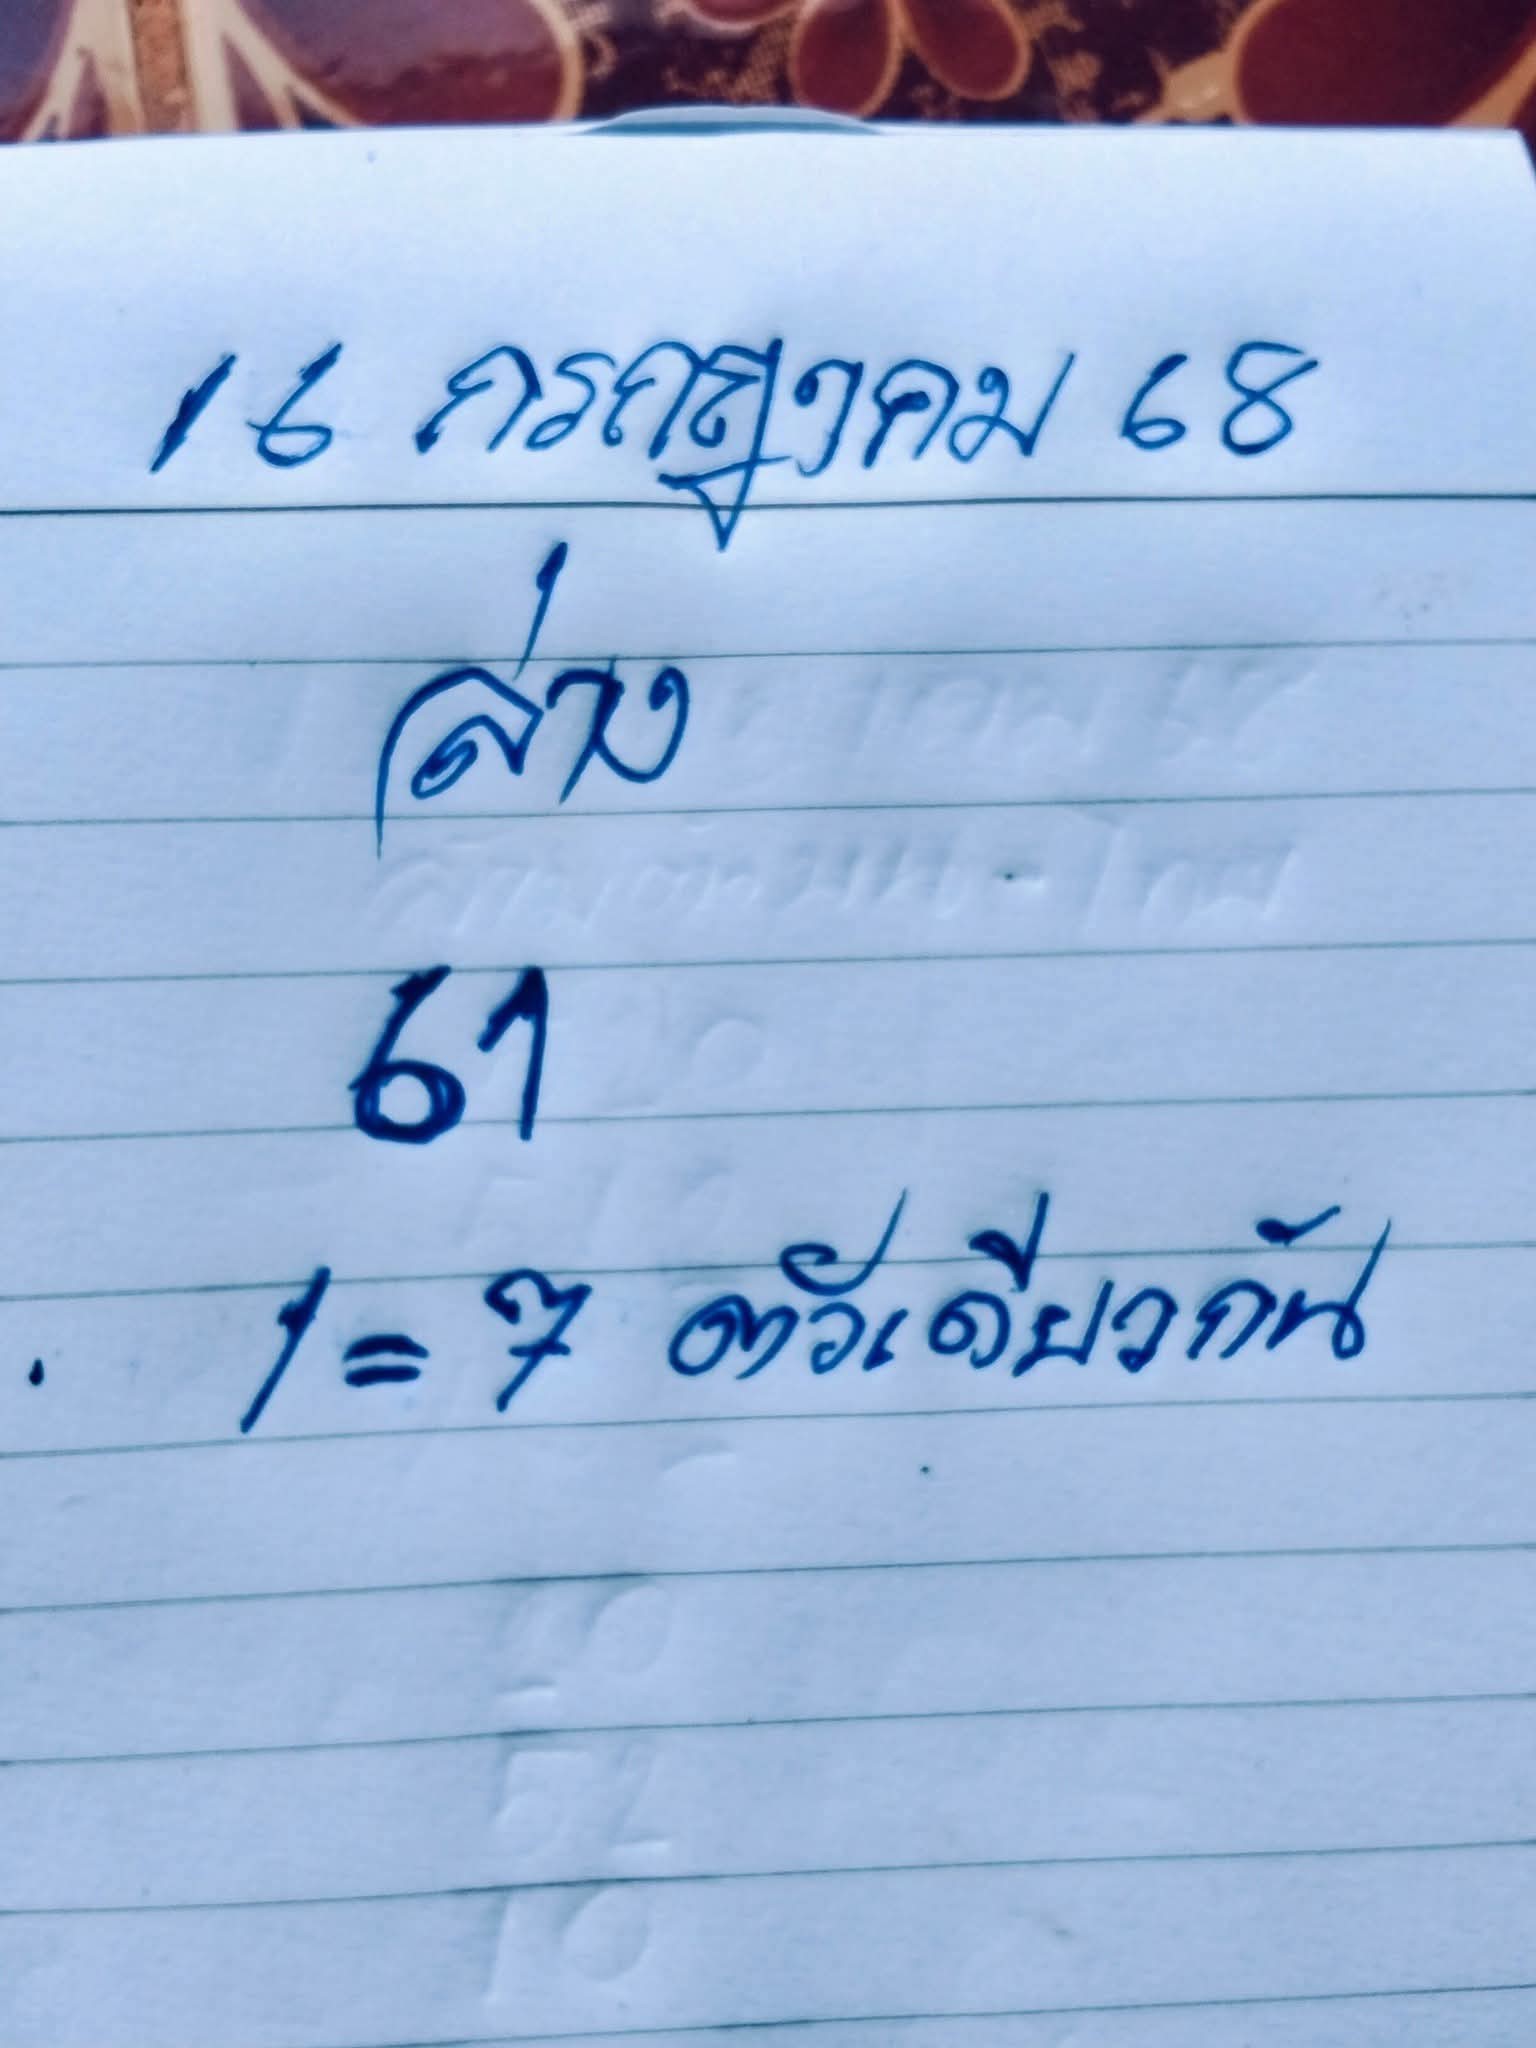 16 กรกฎาคม 68
ล่าง
61
1 = 7 ตัวเดียวกัน